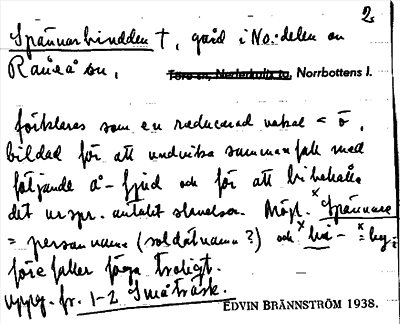 2.
Spännarbindden †, gård i No.-delen av
Råneå sn, Töre sn, Nederkalix tg, Norrbottens l.
förklaras som en reducerad vokal < ō,
bildad för att undvika sammanfall med
följande å-ljud och för att bibehålla
det urspr. antalet stavelser. Möjl. ˣSpännare
= personnamn (soldatnamn?) och ˣbi-
före faller föga troligt.
Uppg. fr. 1-2 Småträsk.
EDVIN BRÄNNSTRÖM 1938.